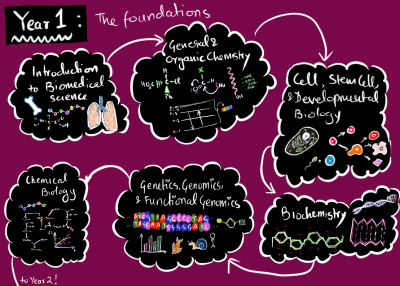 Year 1 : The foundations
Introduction
to Biomedical
science
General &
Organic Chemistry
Cell, Stem Cell,
& Developmental
Biology
Biochemistry
Genetics, Genomics,
& Functional Genomics
Chemical
Biology
to Year 2!